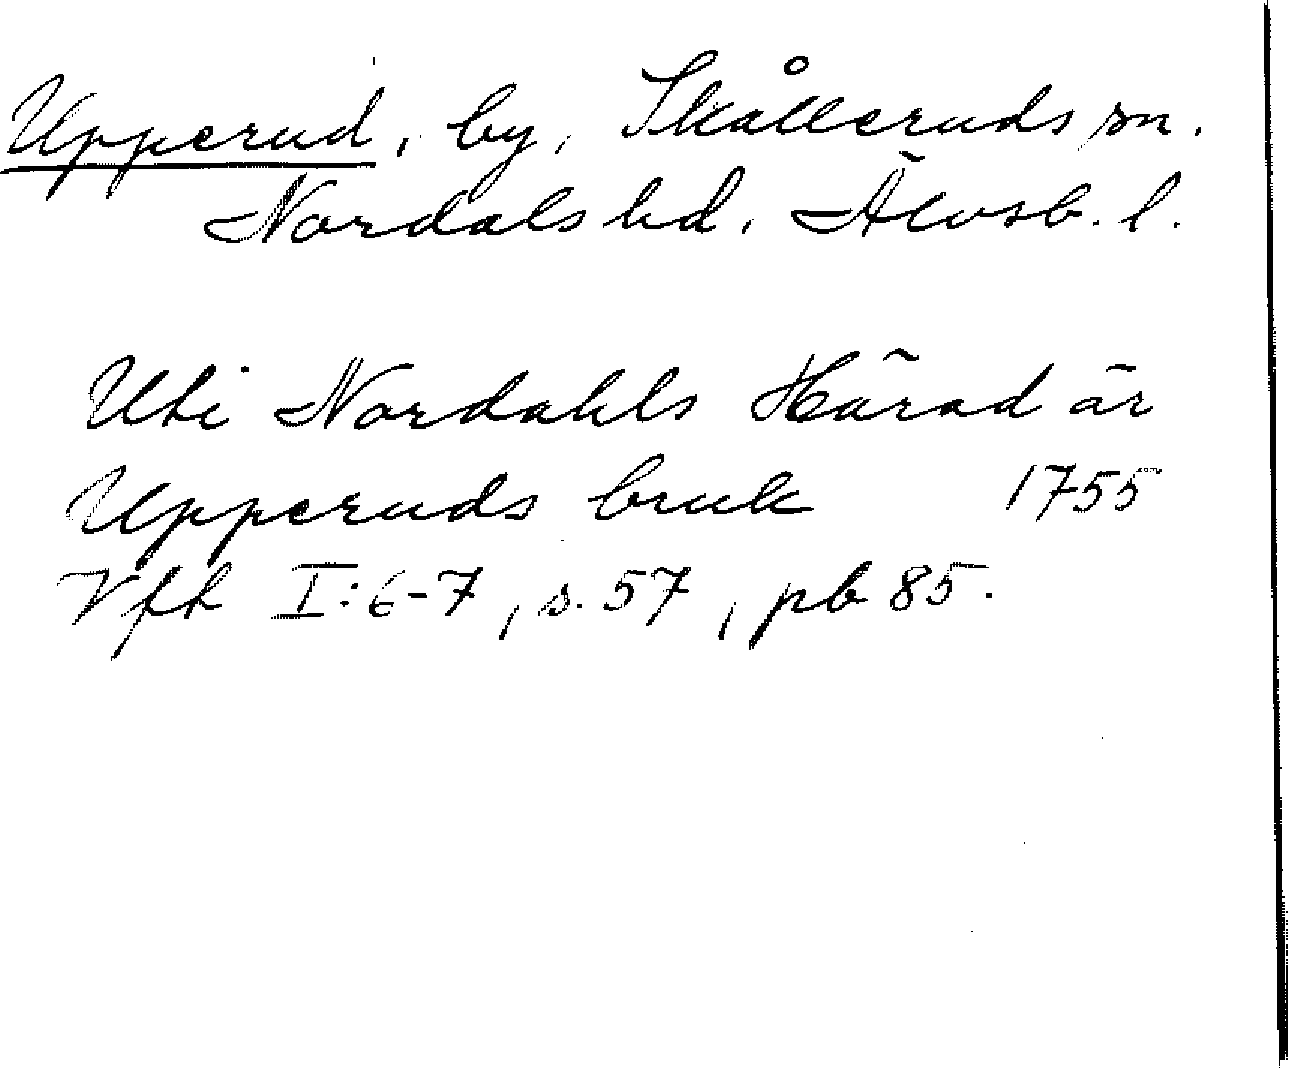 Upperud, by, Skålleruds sn.
Nordals hd. Älvsb. l.
Uti Nordahls Härad är
Upperuds bruk 1755
Vft I:6-7, s. 57, pb 85.